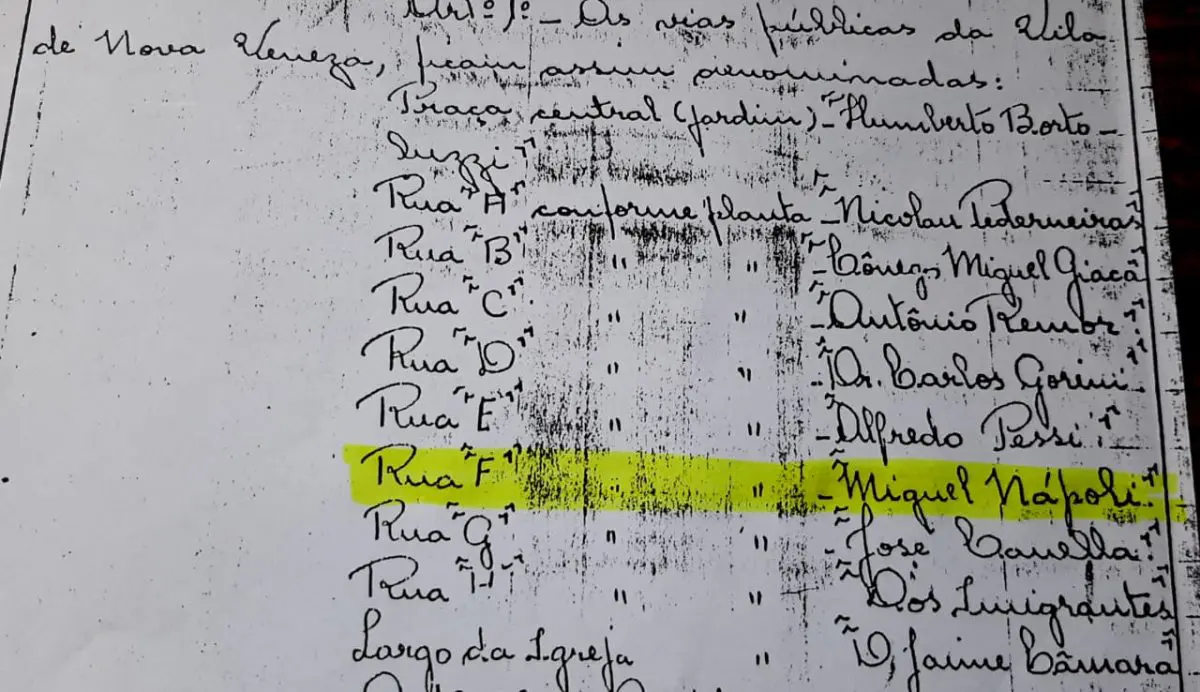 Art.º 1º - As vias públicas da Vila
de Nova Veneza, ficam assim denominadas:
Praça central (jardim) - "Humberto Borto-
luzzi"
Rua "A" conforme planta - "Nicolau Pederneiras"
Rua "B" " " - "Cônego Miguel Giacâ"
Rua "C" " " - "Antônio Remor".
Rua "D" " " - "Dr. Carlos Gorini".
Rua "E" " " - "Alfredo Pessi".
Rua "F" " " - "Miguel Nápoli".
Rua "G" " " - "José Canella".
Rua "H" " " "Dos Imigrantes"
Largo da Igreja " "D. Jaime Câmara"